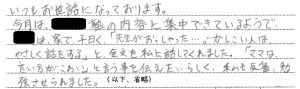 いつもお世話になっております。
今月は、塾の内容に集中できているようで
は、家で、子曰く、「先生がおっしゃった…。かしこい人は、
やさしく話をする」と、覚えを私に話してくれました。「ママは、
言い方がこわい」と言う事を伝えたいらしく、私も反省、勉
強させられました。(以下、省略)